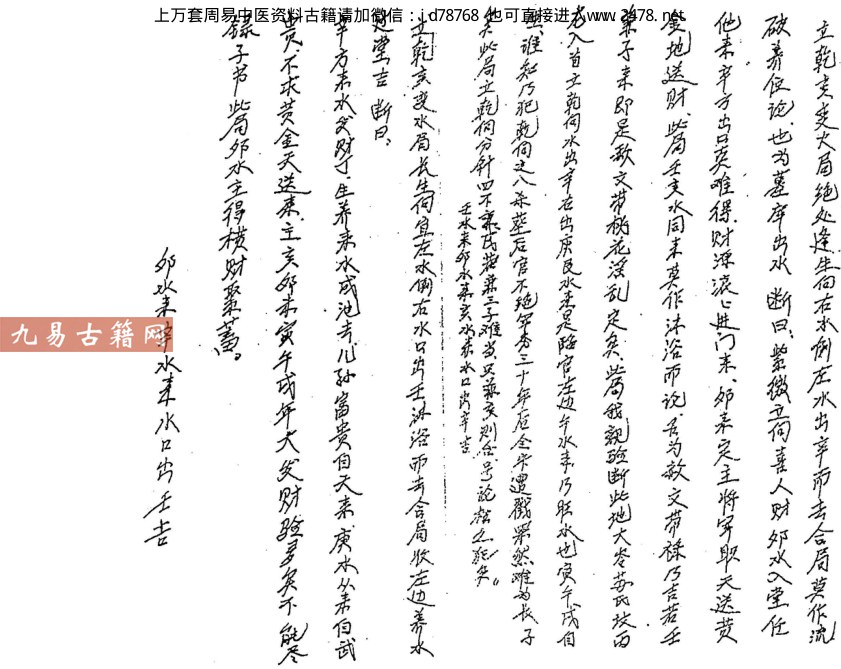 上万套周易中医资料古籍请加微信：jd78768 也可直接进入www.2478.net
立乾亥变火局绝处逢生向右水倒左水出辛而去合局莫作流
破养位论也为墓库出水 断曰：紫微立向喜人财卯水入堂任
他来辛方出口真难得财源滚滚进门来、卯未定主将军取天送黄
金地送财、此局壬亥水同来莫作沐浴而论名为敌文带禄乃吉若壬
兼子来即是敌文带桃花淫乱定矣、此局我亲验断些地大岑苏氏坟酉
龙入首立乾向水出辛在出庚艮水来是临官左边午水来乃旺水也寅午戌自
生、谁知乃犯乾向之八杀葬后官不绝笔秀三十年后全步遭戮果然难为长子
矣此局立乾向分针四不兼
壬水来卯水来亥水来水口出辛吉
立乾亥变水局长生向宜左水倒右水口出壬沐浴而去合局收左边养水
过堂吉 断曰，
辛方来水发财丁、生养来水成池去、儿孙富贵自天来、庚水从来自武
贵、不求黄金天送来、主亥卯未寅午戌年大发财验多矣不能尽
录子书此局卯水主得横财聚蓄。
卯水来辛水来水口出壬吉
九易古籍网